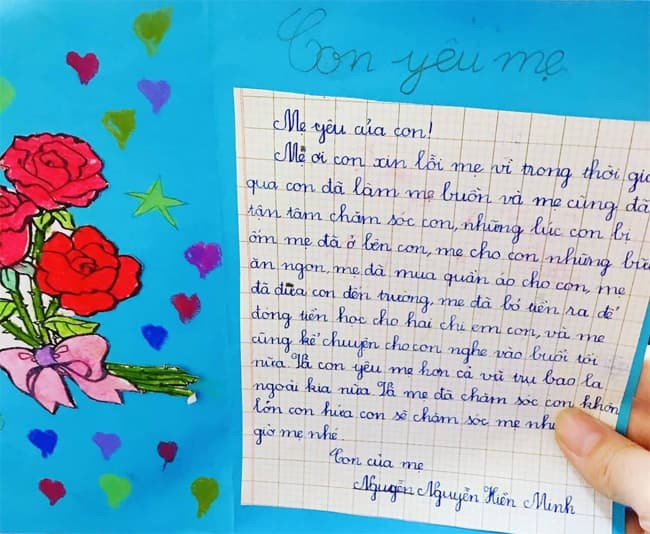 Con yêu mẹ
Mẹ yêu của con!
Mẹ ơi con xin lỗi mẹ vì trong thời gia
qua con đã làm mẹ buồn và mẹ cũng đã
tận tâm chăm sóc con, những lúc con bị
ốm mẹ đã ở bên con, mẹ cho con những bữa
ăn ngon, mẹ đã mua quần áo cho con, mẹ
đã đưa con đến trường, mẹ đã bỏ tiền ra để
đóng tiền học cho hai chị em con, và mẹ
cũng kể chuyện cho con nghe vào buổi tối
nữa. Và con yêu mẹ hơn cả vũ trụ bao la
ngoài kia nữa. Và mẹ đã chăm sóc con khôn
lớn con hứa con sẽ chăm sóc mẹ
giờ mẹ nhé.
Con của mẹ
Nguyễn Nguyễn Hiền Minh